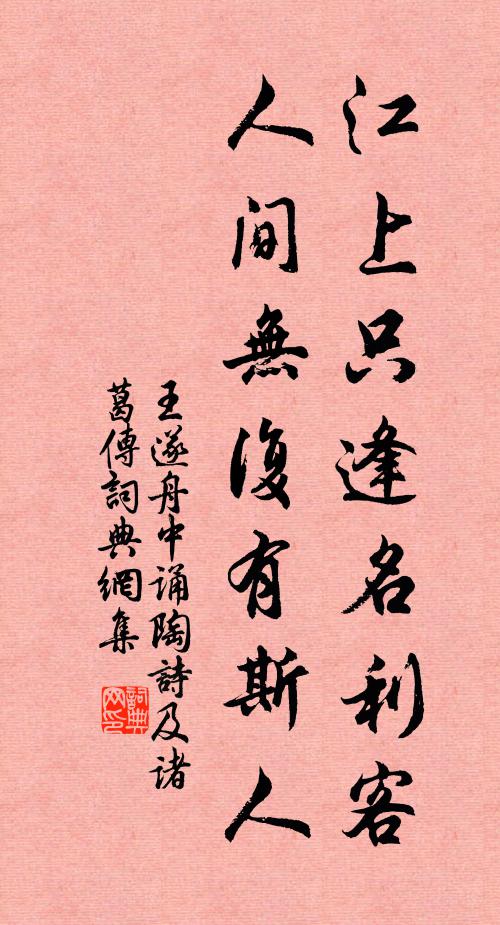 江上只逢名利客
人间無復有斯人
王遂舟中誦陶詩及诸
葛傳詞典網集
詞典
网印